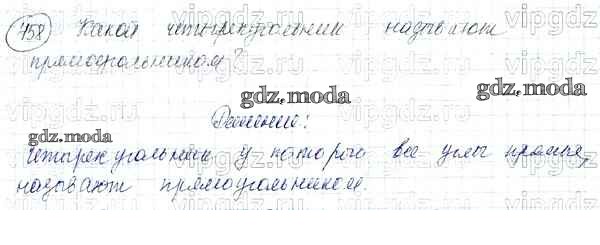 758 Какой четырехугольник называют
прямоугольником?
gdz.moda
gdz.moda
Решение:
gdz.moda
Четырехугольник у которого все углы прямые,
называют прямоугольником.